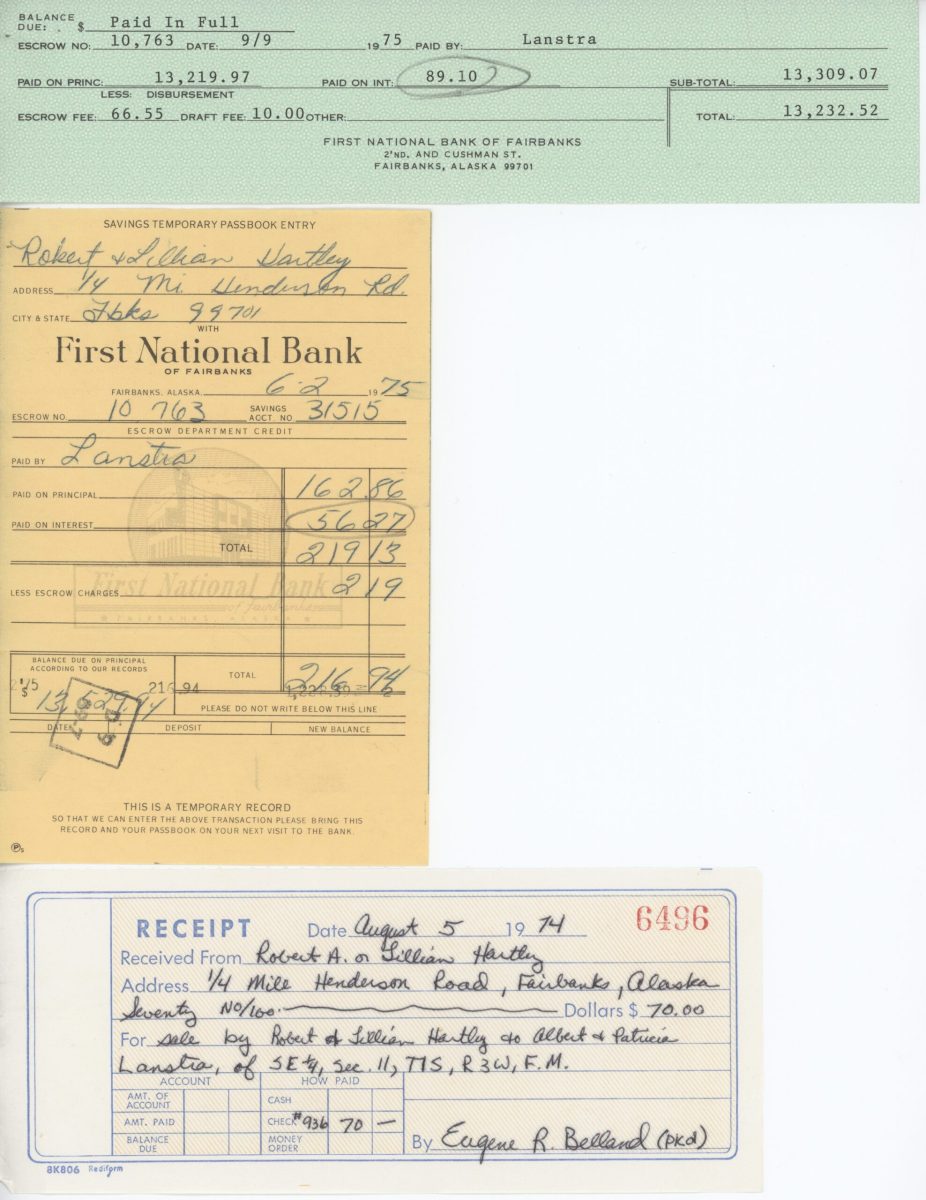 BALANCE DUE: $ Paid In Full
ESCROW NO: 10,763 DATE: 9/9 1975 PAID BY: Lanstra
PAID ON PRINC: 13,219.97 PAID ON INT: 89.10 SUB-TOTAL: 13,309.07
LESS: DISBURSEMENT
ESCROW FEE: 66.55 DRAFT FEE: 10.00 OTHER: TOTAL: 13,232.52
FIRST NATIONAL BANK OF FAIRBANKS
2'ND. AND CUSHMAN ST.
FAIRBANKS, ALASKA 99701
SAVINGS TEMPORARY PASSBOOK ENTRY
Robert & Lillian Hartley
ADDRESS 1/4 Mi. Henderson Rd.
CITY & STATE Fbks 99701
WITH
First National Bank
OF FAIRBANKS
FAIRBANKS, ALASKA, 6-2 1975
ESCROW NO. 10 763 SAVINGS ACCT. NO 31515
ESCROW DEPARTMENT CREDIT
PAID BY Lanstra
PAID ON PRINCIPAL 162.86
PAID ON INTEREST 56 27
TOTAL 219 13
First National Bank
of fairbanks
FAIRBANKS, ALASKA
LESS ESCROW CHARGES 2 19
BALANCE DUE ON PRINCIPAL
ACCORDING TO OUR RECORDS
TOTAL 216 94
$ 13,529.94 216.94
PLEASE DO NOT WRITE BELOW THIS LINE
DATE DEPOSIT NEW BALANCE
THIS IS A TEMPORARY RECORD
SO THAT WE CAN ENTER THE ABOVE TRANSACTION PLEASE BRING THIS
RECORD AND YOUR PASSBOOK ON YOUR NEXT VISIT TO THE BANK.
RECEIPT Date August 5 1974 6496
Received From Robert A. or Lillian Hartley
Address 1/4 Mile Henderson Road, Fairbanks, Alaska
Seventy NO/100 Dollars $ 70.00
For sale by Robert & Lillian Hartley to Albert & Patricia
Lanstra, of SE 1/4, Sec. 11, T1S, R3W, F.M.
ACCOUNT HOW PAID
AMT. OF ACCOUNT CASH
AMT. PAID CHECK #936 70 —
BALANCE DUE MONEY ORDER
By Eugene R. Belland (pkd)
8K806 Rediform